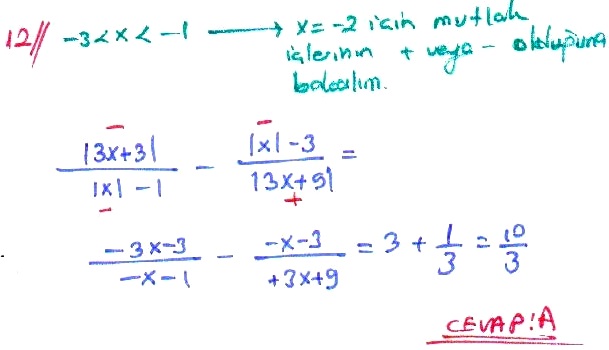 12// -3<x<-1 → x=-2 için mutlak
içlerinin + veya - olduğuna
bakalım.
|3x+3| / |x|-1 - |x|-3 / |3x+9| =
-3x-3 / -x-1 - -x-3 / +3x+9 = 3 + 1/3 = 10/3
CEVAP:A